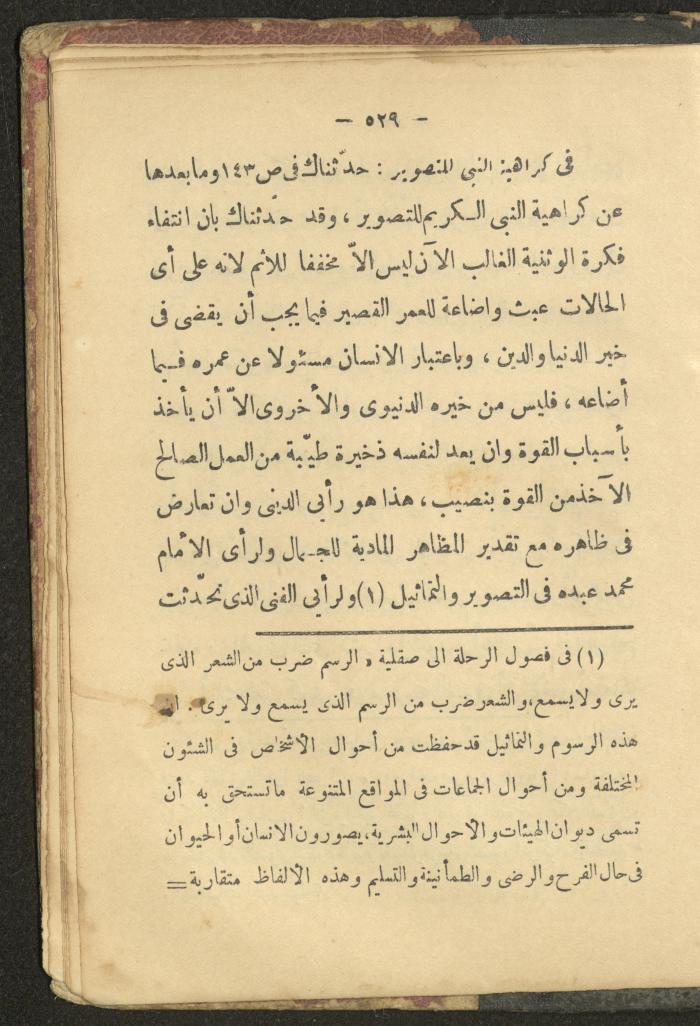 - ٥٢٩ -
فى كراهية النبى للتصوير : حدّثناك فى ص ١٤٣ وما بعدها
عن كراهية النبى الكريم للتصوير ، وقد حدّثناك بان انتفاء
فكرة الوثنية الغالب الآن ليس الاّ مخففا للاثم لانه على أى
الحالات عبث واضاعة للعمر القصير فيما يجب أن يقضى فى
خير الدنيا والدين ، وباعتبار الانسان مسئولا عن عمره فيما
أضاعه ، فليس من خيره الدنيوى والأخروى الاّ أن يأخذ
بأسباب القوة وان يعد لنفسه ذخيرة طيّبة من العمل الصالح
الآخذ من القوة بنصيب ، هذا هو رأيي الدينى وان تعارض
فى ظاهره مع تقدير المظاهر المادية للجمال ولرأى الأمام
محمد عبده فى التصوير والتماثيل (١) ولرأيي الفنى الذى تحدّثت
(١) فى فصول الرحلة الى صقلية « الرسم ضرب من الشعر الذى
يرى ولا يسمع ، والشعر ضرب من الرسم الذى يسمع ولا يرى . ان
هذه الرسوم والتماثيل قد حفظت من أحوال الأشخاص فى الشئون
المختلفة ومن أحوال الجماعات فى المواقع المتنوعة ما تستحق به أن
تسمى ديوان الهيئات والأحوال البشرية ، يصورون الانسان أو الحيوان
فى حال الفرح والرضى والطمأنينة والتسليم وهذه الألفاظ متقاربة =